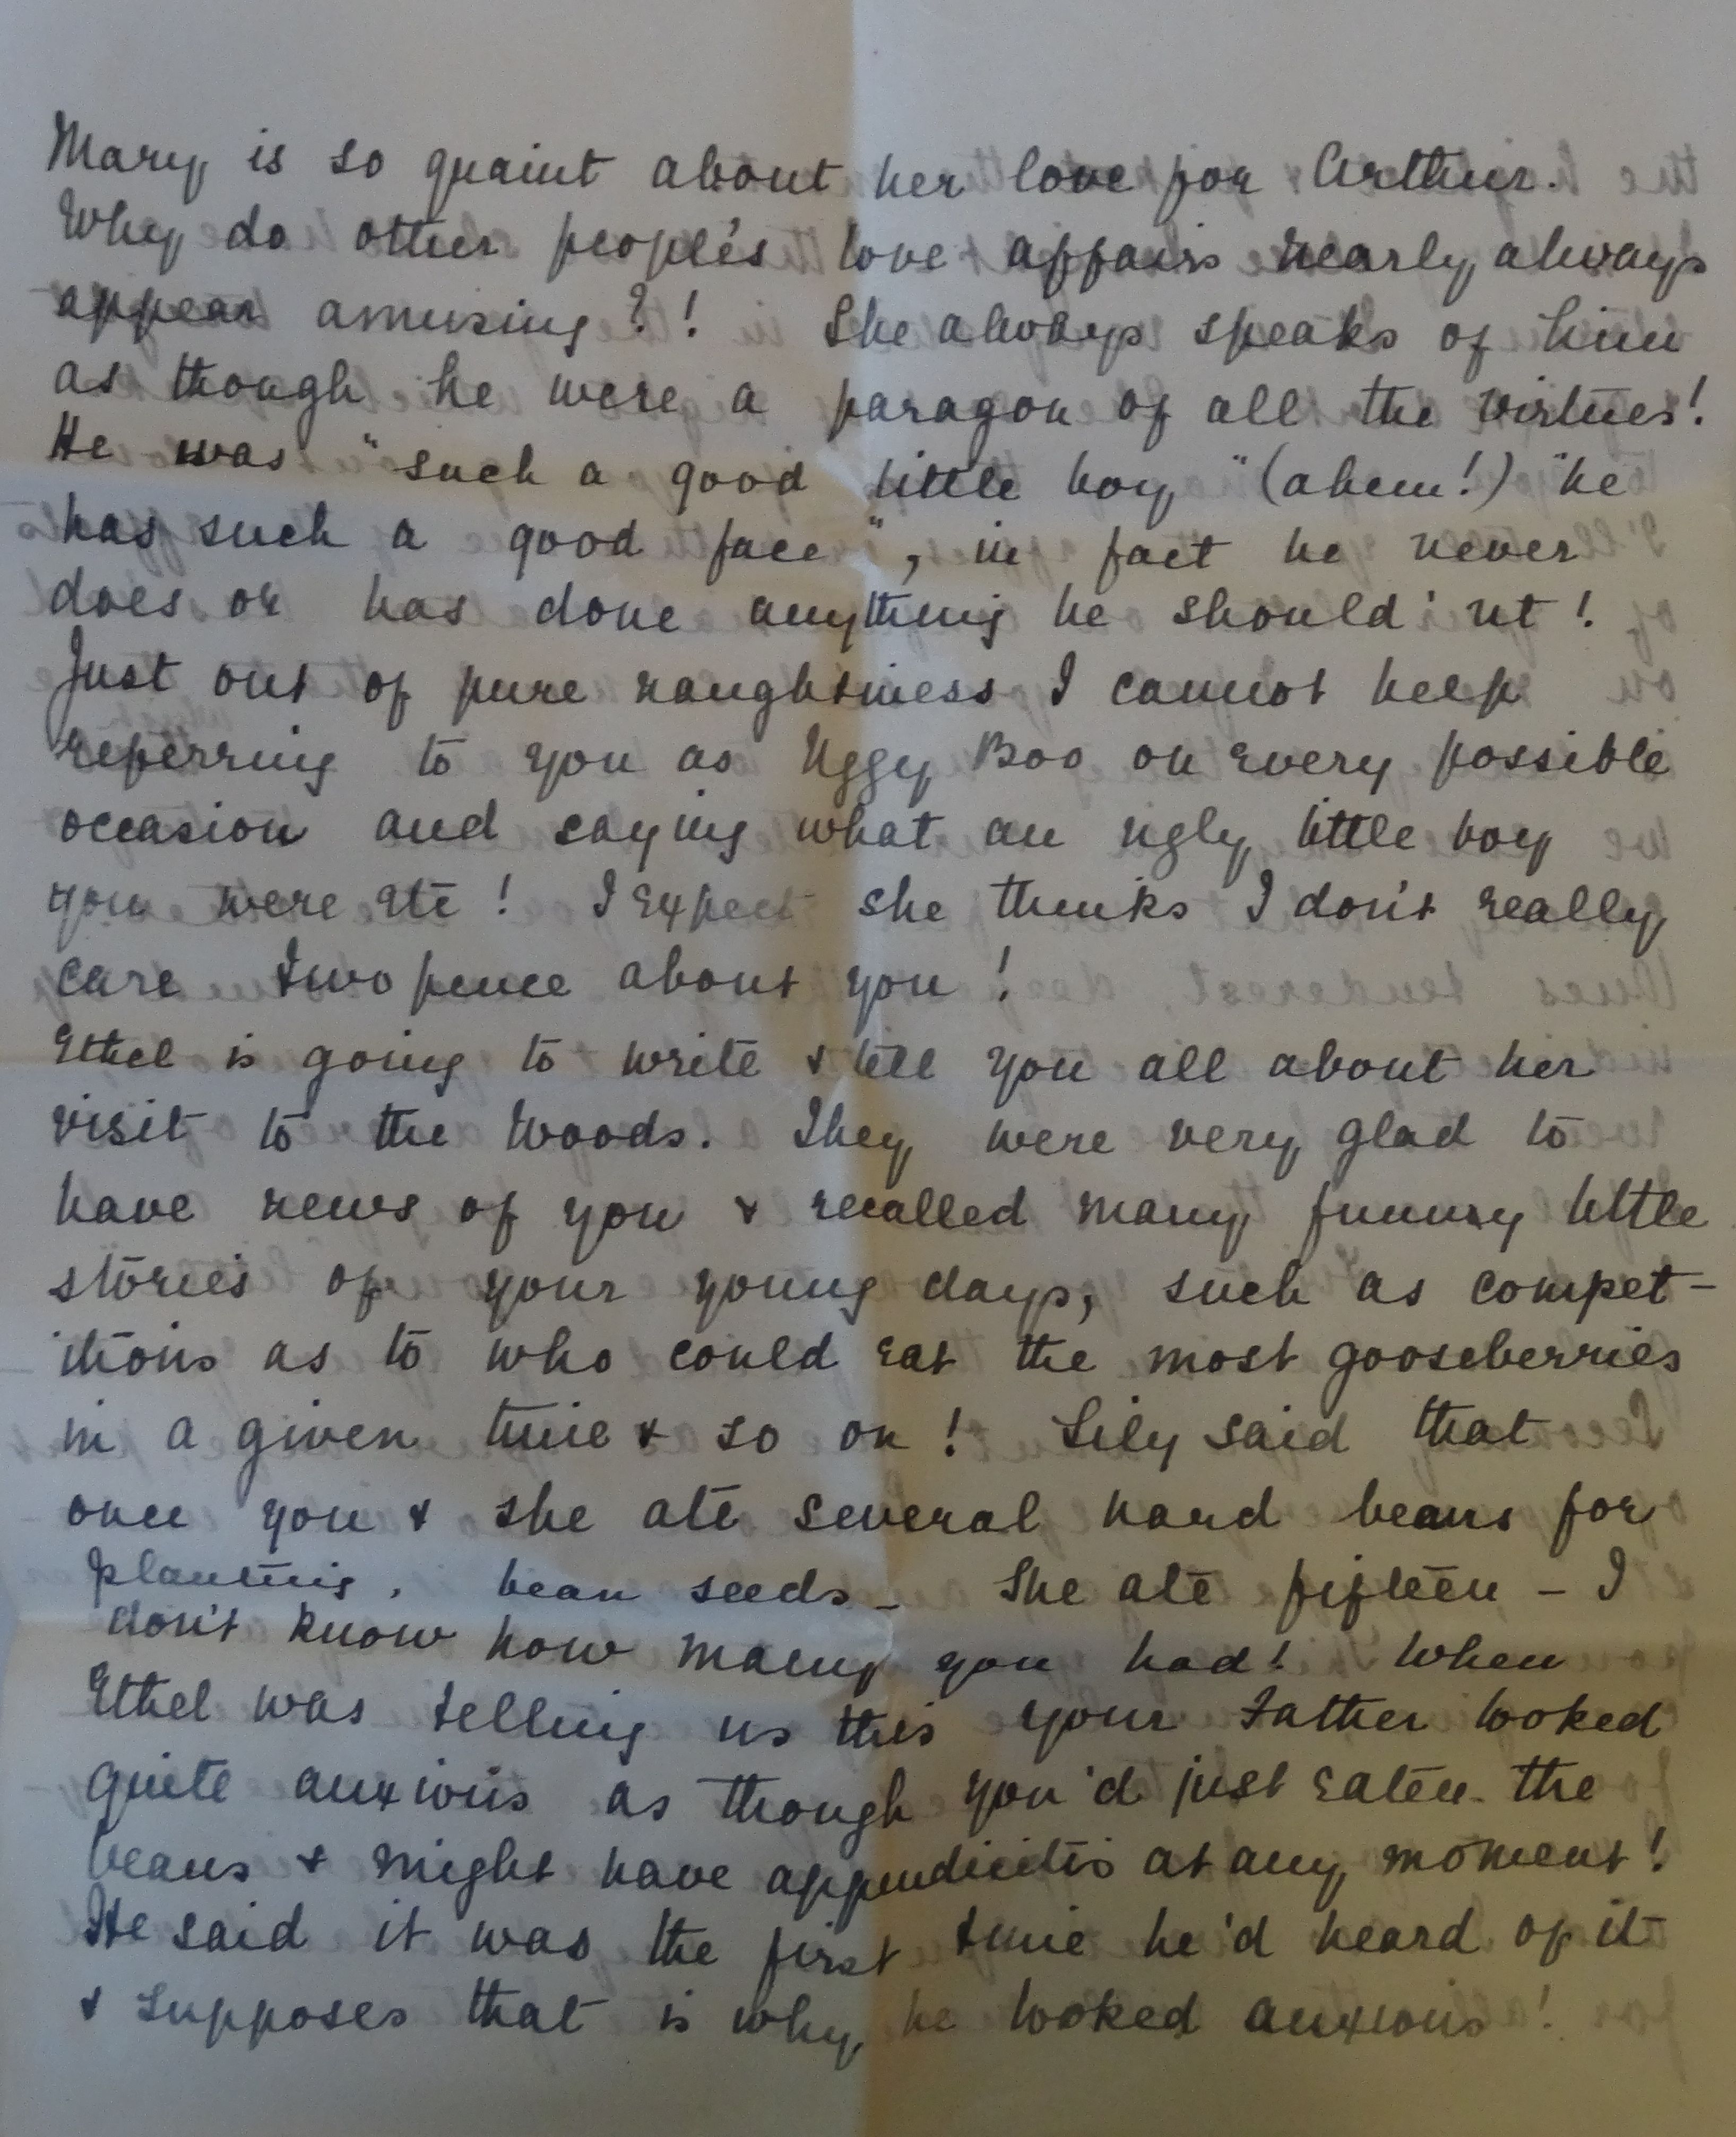 Mary is so quaint about her love for Arthur.
Why do other people's love affairs nearly always
appear amusing?! She always speaks of him
as though he were a paragon of all the virtues!
He was "such a good little boy" (ahem!) "he
has such a good face", in fact he never
does or has done anything he should'nt!
Just out of pure naughtiness I cannot help
referring to you as Uggy Boo on every possible
occasion and saying what an ugly little boy
you were etc! I expect she thinks I don't really
care twopence about you!
Ethel is going to write & tell you all about her
visit to the Woods. They were very glad to
have news of you & recalled many funny little
stories of your young days, such as compet-
itions as to who could eat the most gooseberries
in a given time & so on! Lily said that
once you & she ate several hard beans for
planting, bean seeds - She ate fifteen - I
don't know how many you had! When
Ethel was telling us this your Father looked
quite anxious as though you'd just eaten the
beans & might have appendicitis at any moment!
He said it was the first time he'd heard of it
& supposes that is why he looked anxious!